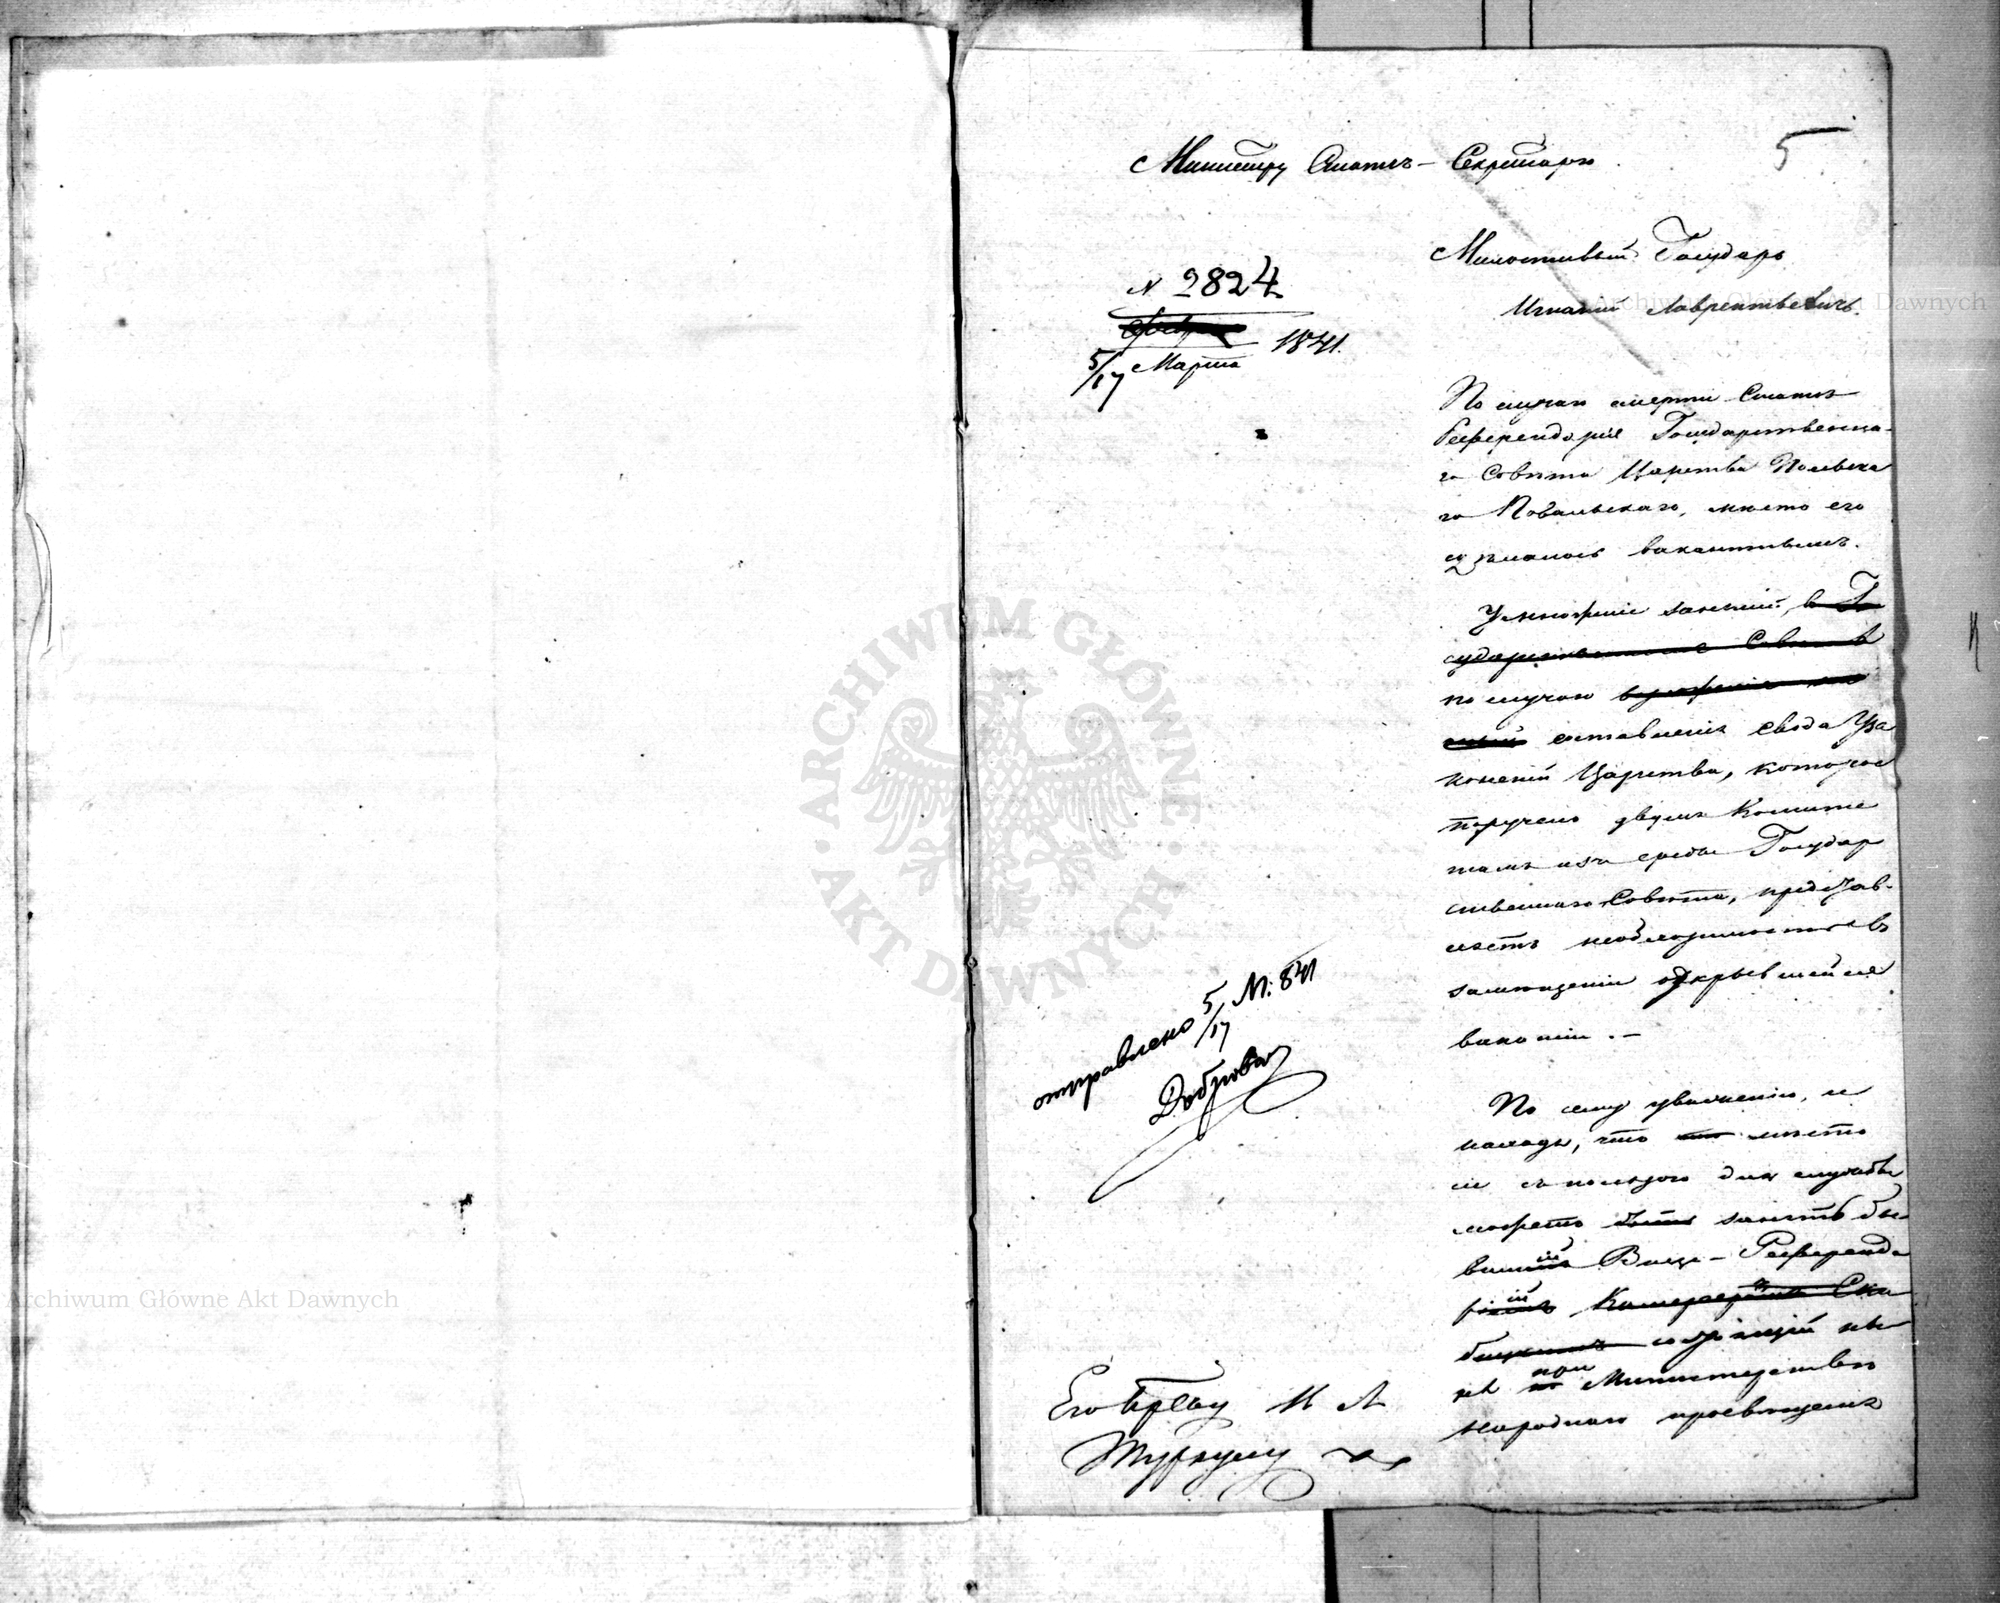 5
Министру Статсъ-Секретарю.
Милостивый Государь
Игнатій Лаврентьевичъ.
N 2824
5/17 Марта 1841.
По случаю смерти Статсъ
Референдарія Государственна-
го Совѣта Царства Польска
го Ковальскаго, мѣсто его
сдѣлалось вакантнымъ.
Умноженіе занятій, в Го
сударственномъ Совѣтѣ
по случаю
составленія свода Уза
коненій Царства, которое
поручено двумъ Комите
тамъ изъ среды Государ
ственнаго Совѣта, представ-
ляетъ необходимость въ
замѣщеніи открывшейся
вакансіи. —
По сему уваженію, и
находя, что мѣсто
сіе съ пользою для службы
можетъ быть занять бы-
вшій Вице-Референда
рій
состоящій ны
нѣ при Министерствѣ
народнаго просвѣщенія
отправлено 5/17 М. 841
Его Прев у И Л
Туркулу
ARCHIWUM GŁÓWNE · AKT DAWNYCH ·
Archiwum Główne Akt Dawnych
Archiwum Główne Akt Dawnych